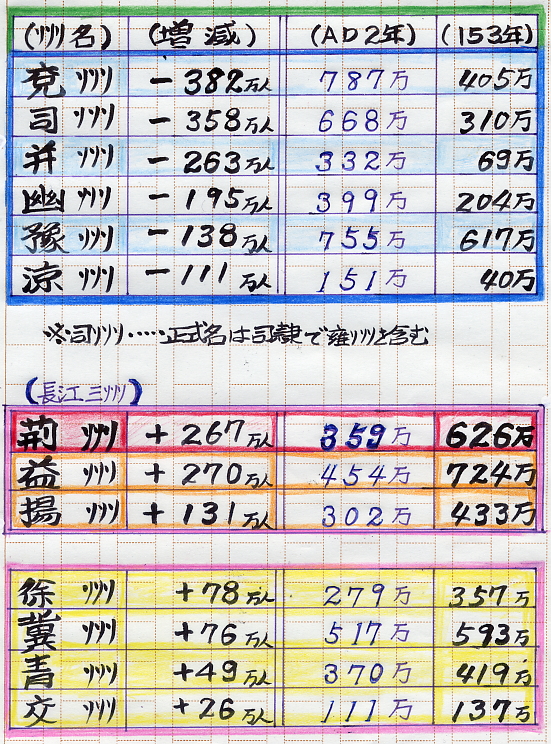 (州名) (増減) (AD2年) (153年)
兗州 －382万人 787万 405万
司州 －358万人 668万 310万
并州 －263万人 332万 69万
幽州 －195万人 399万 204万
豫州 －138万人 755万 617万
涼州 －111万人 151万 40万
※司州‥‥正式名は司隷で雍州を含む
(長江三州)
荊州 +267万人 359万 626万
益州 +270万人 454万 724万
揚州 +131万人 302万 433万
徐州 +78万人 279万 357万
冀州 +76万人 517万 593万
青州 +49万人 370万 419万
交州 +26万人 111万 137万